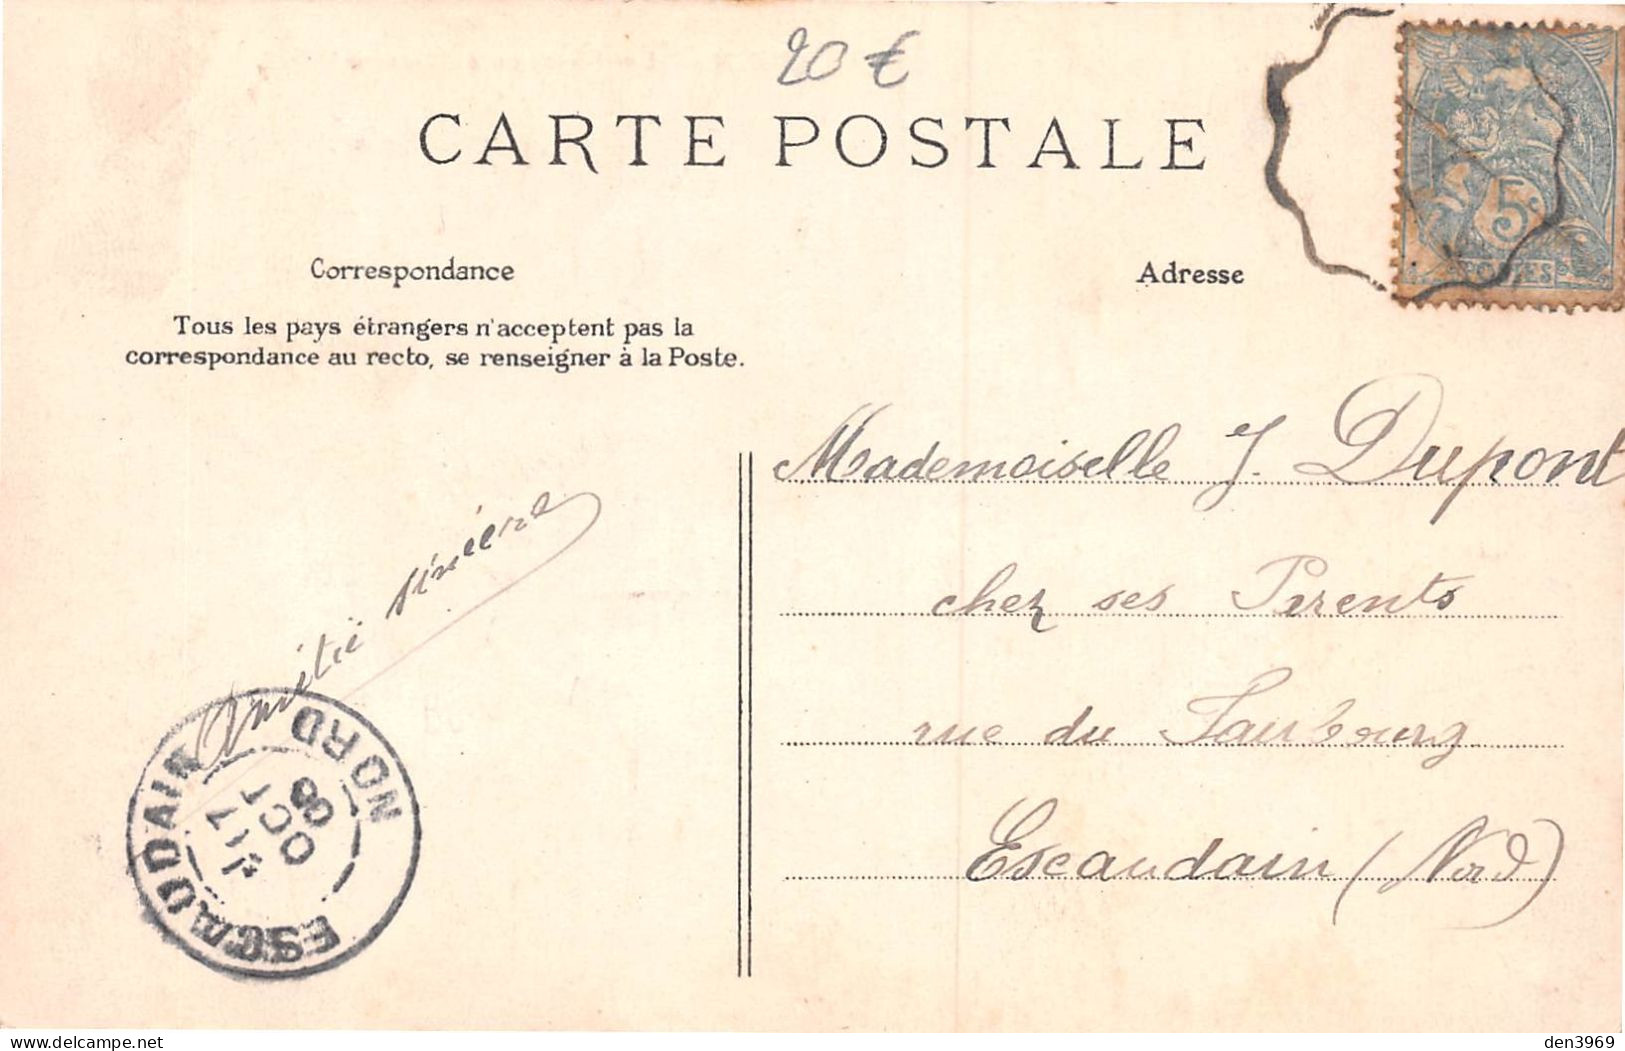 20 €
CARTE POSTALE
Correspondance
Adresse
Tous les pays étrangers n'acceptent pas la
correspondance au recto, se renseigner à la Poste.
5c
POSTES
Mademoiselle J. Dupont
chez ses Parents
rue du Faubourg
Escaudain (Nord)
Amitié sincère
ESCAUDAIN
NORD
17
OCT
den3969